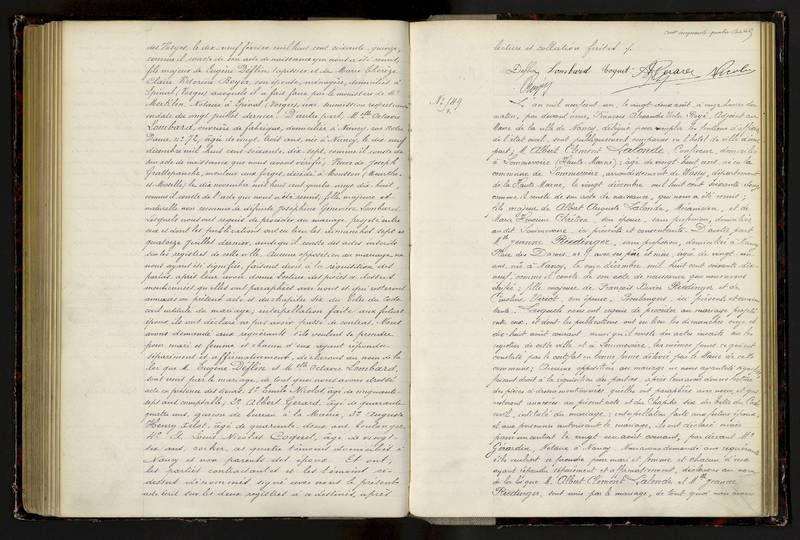 des Vosges, le dix neuf février mil huit cent soixante quinze,
comme il conste de son acte de naissance qui nous a été remis,
fils majeur de Eugène Déflin, tapissier et de Marie Thérèze
Claire Victorine Boyer, son épouse, ménagère, domiciliés à
Epinal (Vosges)
Notaire à Epinal (Vosges),
juillet dernier. D'autre part, Mlle Octavie
Lombard, ouvrière de fabrique, domiciliée à Nancy, rue Notre
Dame, no 72, âgée de vingt trois ans, née à Nancy, le dix neuf
décembre mil huit cent soixante dix sept, comme il conste de
son acte de naissance que nous avons vérifié; Veuve de Joseph
décédé à Mousson (Meurthe
et Moselle) le dix novembre mil huit cent quatre vingt dix huit,
comme il conste de l'acte qui nous a été remis; fille majeure et
naturelle non reconnue de défunte Joséphine Geneviève Lombard.
Lesquels nous ont requis de procéder au mariage projeté entre
eux et dont les publications ont eu lieu les dimanches sept et
quatorze juillet dernier, ainsi qu'il conste des actes inscrits
sur les registres de cette ville. Aucune opposition au mariage ne
nous ayant été signifiée, faisant droit à la réquisition des
parties, après leur avoir donné lecture des pièces ci dessus
mentionnées, qu'elles ont paraphées avec nous et qui resteront
annexées au présent acte et du chapitre six du titre du Code
civil intitulé du mariage; interpellation faite aux futurs
époux, ils ont déclaré ne pas avoir passé de contrat. Nous
avons demandé aux requérants s'ils veulent se prendre
pour mari et femme et chacun d'eux ayant répondu
séparément et affirmativement, déclarons au nom de la
loi que M. Eugène Déflin et Mlle Octavie Lombard,
sont unis par le mariage, de tout quoi nous avons dressé
acte en présence des sieurs 1o Emile Nicolas, âgé de cinquante
sept ans, comptable, 2o Albert Gérard, âgé de quarante
quatre ans, garçon de bureau à la Mairie, 3o Auguste
Henry âgé de quarante deux ans, boulanger,
4o Louis Nicolas Coquet, âgé de vingt
six ans, cocher, ces quatre témoins domiciliés à
Nancy et non parents des époux. Et ont,
les parties contractantes et les témoins ci
dessus dénommés signé avec nous le présent
acte écrit sur les deux registres à ce destinés, après
lecture et collation faites ./.
Déflin Lombard Coquet A. Gérard Nicolas
No 749
L'an mil neuf cent un, le vingt deux août, à onze heures du
matin, par devant nous, François Alexandre Adjoint au
Maire de la ville de Nancy, délégué pour remplir les fonctions d'officier
de l'état civil, sont publiquement comparus en l'hôtel de ville d'une
part, M. Albert Clément Lalonde, domicilié
à Sommevoire (Haute Marne); âgé de vingt huit ans, né en la
commune de Sommevoire, arrondissement de Wassy, département
de la Haute Marne, le vingt décembre mil huit cent soixante douze
comme il conste de son acte de naissance, qui nous a été remis;
fils majeur de Albert Auguste Lalonde, et de
Marie Chrétien son épouse, sans profession, domiciliés
au dit Sommevoire, ici présents et consentants. D'autre part
Mlle Jeanne Riedinger, sans profession, domiciliée à Nancy
Place des Dames, avec ses père et mère, âgée de vingt un
ans, née à Nancy, le onze décembre mil huit cent soixante dix
neuf, comme il conste de son acte de naissance que nous avons
vérifié; fille majeure de François Xavier Riedinger et de
Caroline son épouse, Boulangers, ici présents et consen
tants. Lesquels nous ont requis de procéder au mariage projeté
entre eux, et dont les publications ont eu lieu les dimanches onze et
dix huit août courant, ainsi qu'il conste des actes inscrits sur les
registres de cette ville et à Sommevoire,
constaté par le certificat en bonne forme délivré par le Maire de cette
commune; Aucune opposition au mariage ne nous ayant été signifiée,
faisant droit à la réquisition des parties, après leur avoir donné lecture
des pièces ci dessus mentionnées, qu'elles ont paraphées avec nous et qui
resteront annexées au présent acte et du Chapitre six du titre du Code
civil, intitulé du mariage; interpellation faite aux futurs époux,
et aux personnes autorisant le mariage, ils ont déclaré avoir
passé contrat le vingt un août courant, par devant Me
Girardin, Notaire à Nancy. Nous avons demandé aux requérants
s'ils veulent se prendre pour mari et femme et chacun d'eux
ayant répondu séparément et affirmativement, déclarons au nom
de la loi que M. Albert Clément Lalonde et Mlle Jeanne
Riedinger, sont unis par le mariage, de tout quoi nous avons